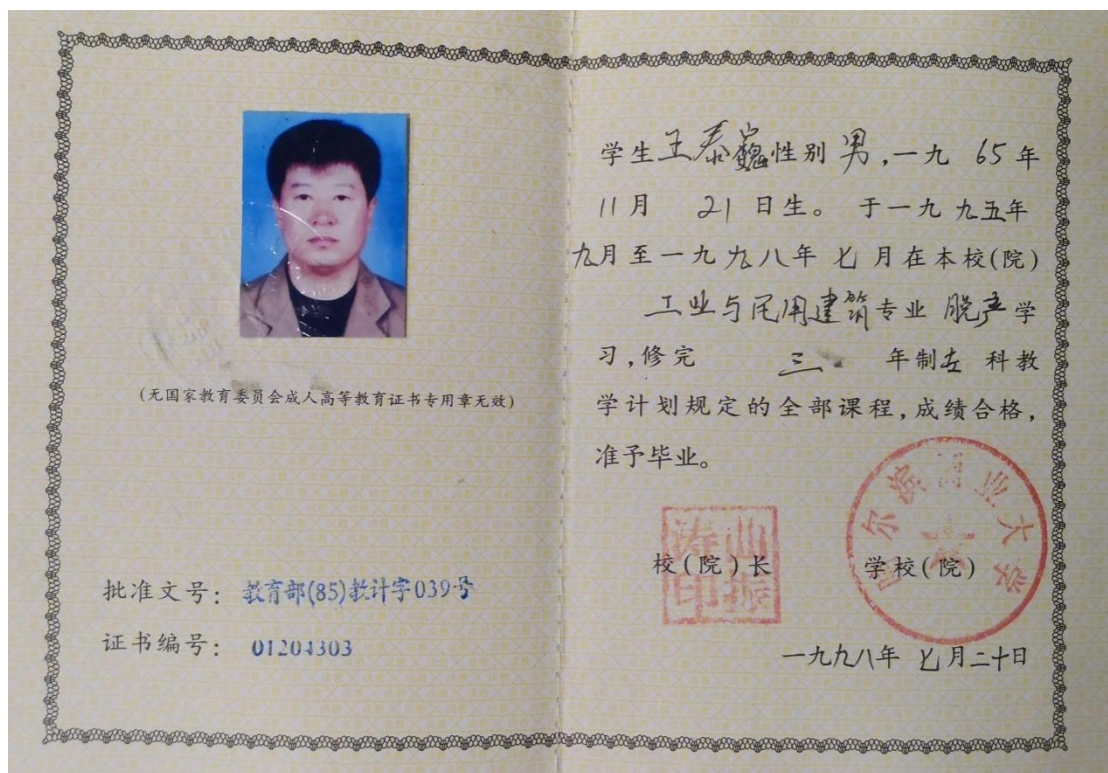 (无国家教育委员会成人高等教育证书专用章无效)
批准文号: 教育部(85)教计字039号
证书编号: 01204303
学生王泰巍性别 男,一九 65 年
11月 21 日生。于一九 九五年
九月至一九 九八年 七 月在本校(院)
工业与民用建筑专业 脱产学
习,修完 三 年制 科教
学计划规定的全部课程,成绩合格,
准予毕业。
校(院)长
学校(院)
一九九八年 七月二十日